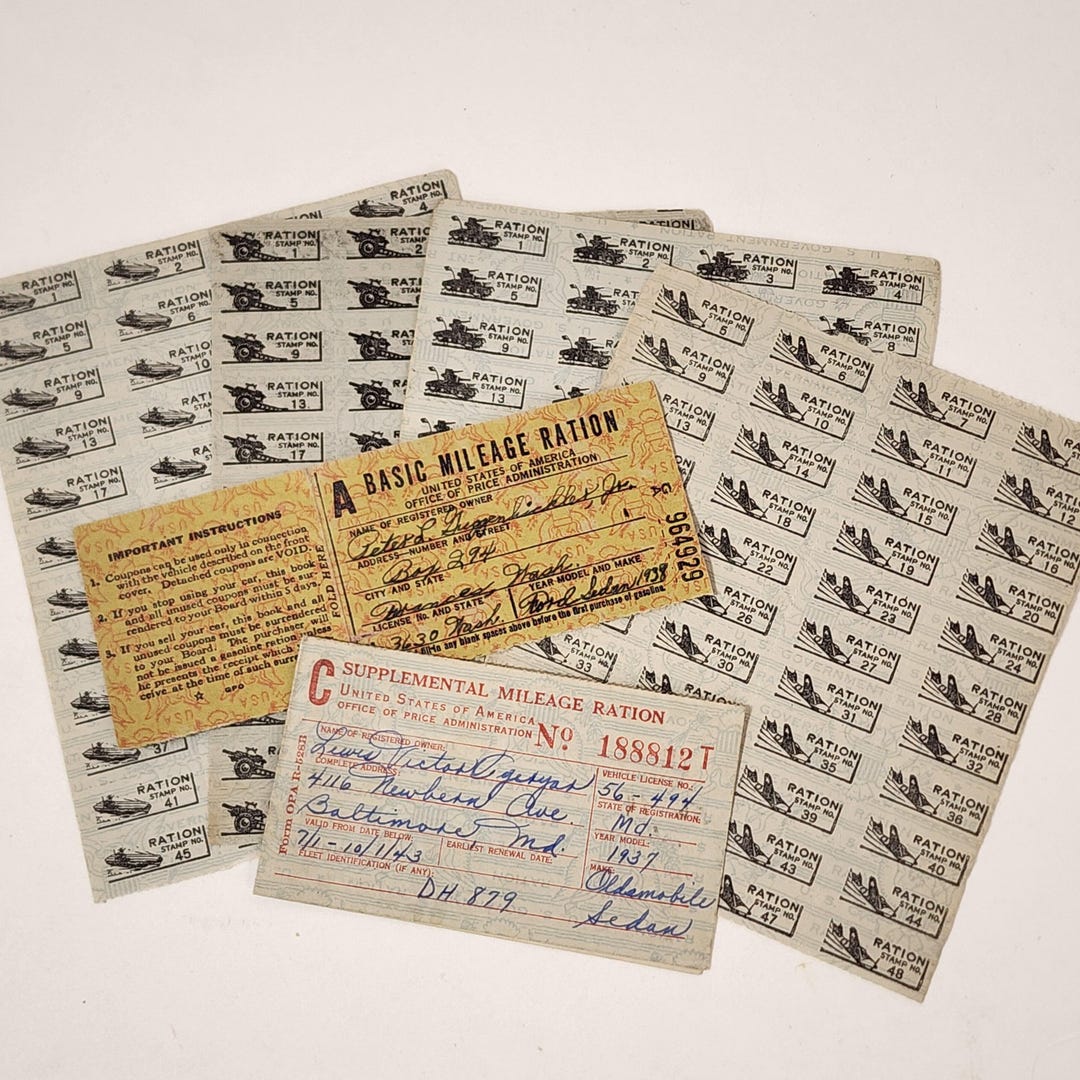 RATION
STAMP NO.
4
RATION
STAMP NO.
1
RATION
STAMP NO.
2
RATION
STAMP NO.
5
RATION
STAMP NO.
6
RATION
STAMP NO.
9
RATION
STAMP NO.
10
RATION
STAMP NO.
13
RATION
STAMP NO.
17
37
RATION
STAMP NO.
41
RATION
STAMP NO.
45
RATION
STAMP NO.
1
RATION
STAMP NO.
5
RATION
STAMP NO.
9
RATION
STAMP NO.
13
RATION
STAMP NO.
17
RATION
STAMP NO.
1
RATION
STAMP NO.
2
RATION
STAMP NO.
3
RATION
STAMP NO.
4
RATION
STAMP NO.
5
RATION
STAMP NO.
8
RATION
STAMP NO.
9
RATION
STAMP NO.
13
RATION
STAMP NO.
5
RATION
STAMP NO.
6
RATION
STAMP NO.
7
RATION
STAMP NO.
9
RATION
STAMP NO.
10
RATION
STAMP NO.
11
RATION
STAMP NO.
12
RATION
STAMP NO.
13
RATION
STAMP NO.
14
RATION
STAMP NO.
15
RATION
STAMP NO.
16
RATION
STAMP NO.
18
RATION
STAMP NO.
19
RATION
STAMP NO.
20
RATION
STAMP NO.
22
RATION
STAMP NO.
23
RATION
STAMP NO.
24
RATION
STAMP NO.
26
RATION
STAMP NO.
27
RATION
STAMP NO.
28
RATION
STAMP NO.
30
RATION
STAMP NO.
31
RATION
STAMP NO.
32
RATION
STAMP NO.
33
RATION
STAMP NO.
35
RATION
STAMP NO.
36
RATION
STAMP NO.
39
RATION
STAMP NO.
40
RATION
STAMP NO.
43
RATION
STAMP NO.
44
RATION
STAMP NO.
47
RATION
STAMP NO.
48
IMPORTANT INSTRUCTIONS
1. Coupons can be used only in connection
with the vehicle described on the front
cover. Detached coupons are VOID.
2. If you stop using your car, this book
and all unused coupons must be sur-
rendered to your Board within 5 days.
3. If you sell your car, this book and all
unused coupons must be surrendered
to your Board. The purchaser will
not be issued a gasoline ration
he presents the receipt which
ceive at the time of such surr
☆ GPO
FOLD HERE
A BASIC MILEAGE RATION
UNITED STATES OF AMERICA
OFFICE OF PRICE ADMINISTRATION
NAME OF REGISTERED OWNER
Peter L Jr.
ADDRESS—NUMBER AND STREET
Box 294
CITY AND STATE
Wash.
LICENSE No. AND STATE
YEAR MODEL AND MAKE
Wash.
Ford Sedan 1938
any blank spaces above before the first purchase of gasoline.
964929
CA
C SUPPLEMENTAL MILEAGE RATION
UNITED STATES OF AMERICA
OFFICE OF PRICE ADMINISTRATION
Nº 188812 T
Form OPA R-528B
NAME OF REGISTERED OWNER:
Lewis Victor
COMPLETE ADDRESS:
4116 Newbern Ave.
Baltimore, Md.
VALID FROM DATE BELOW:
7/1-10/1/43
EARLIEST RENEWAL DATE:
FLEET IDENTIFICATION (IF ANY):
DH 879
VEHICLE LICENSE NO.:
56-494
STATE OF REGISTRATION:
Md.
YEAR MODEL:
1937
MAKE:
Oldsmobile
Sedan